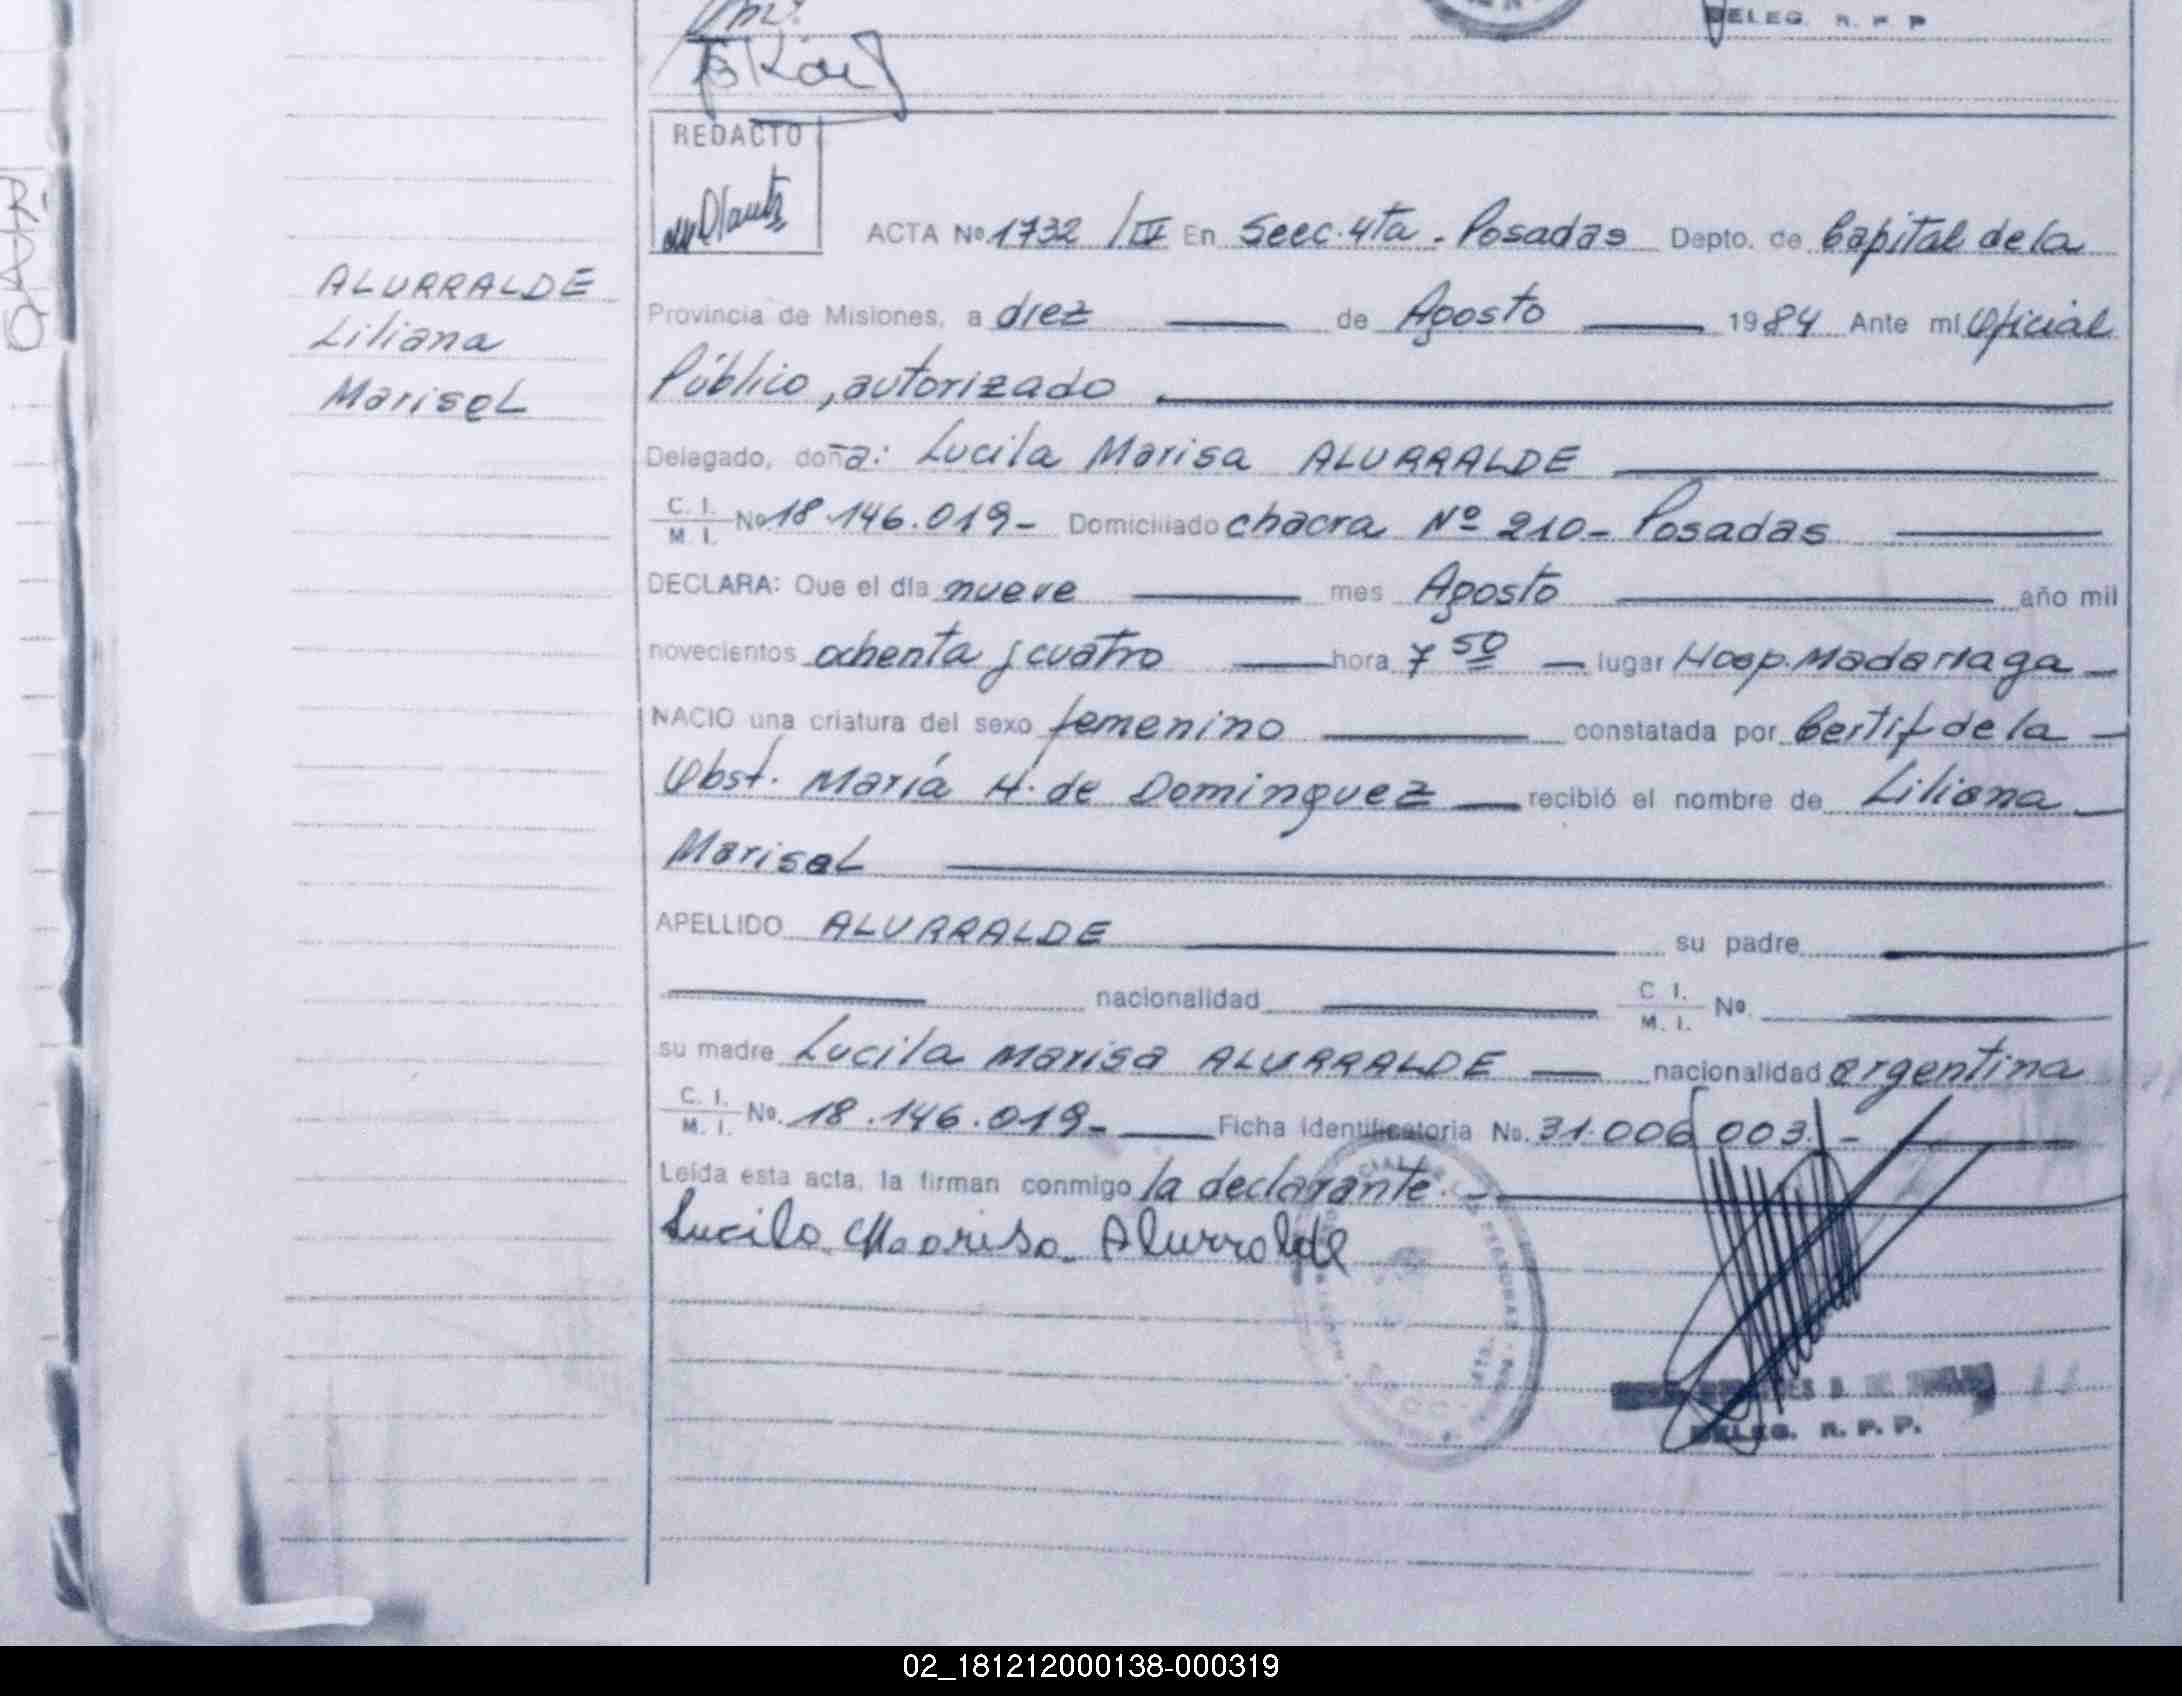 DELEG. R. P. P
REDACTO
ACTA Nº 1732 / IV En Secc. 4ta - Posadas Depto. de Capital de la
ALURRALDE
Liliana
Marisel
Provincia de Misiones, a diez de Agosto 1984 Ante mí Oficial
Público, autorizado
Delegado, doña: Lucila Marisa ALURRALDE
C. I. / M. I. Nº 18.146.019- Domiciliado chacra Nº 210- Posadas
DECLARA: Que el día nueve mes Agosto año mil
novecientos ochenta y cuatro hora 7 50 lugar Hosp. Madariaga
NACIO una criatura del sexo femenino constatada por Certif de la
Obst. María H. de Dominguez recibió el nombre de Liliana
Marisel
APELLIDO ALURRALDE su padre
nacionalidad C I. / M. I. Nº.
su madre Lucila Marisa ALURRALDE nacionalidad argentina
C. I. / M. I. No. 18.146.019- Ficha Identificatoria No. 31.006.003.-
Leída esta acta, la firman conmigo la declarante.-
Lucila Marisa Alurralde
DELEG. R. P. P.
02_181212000138-000319